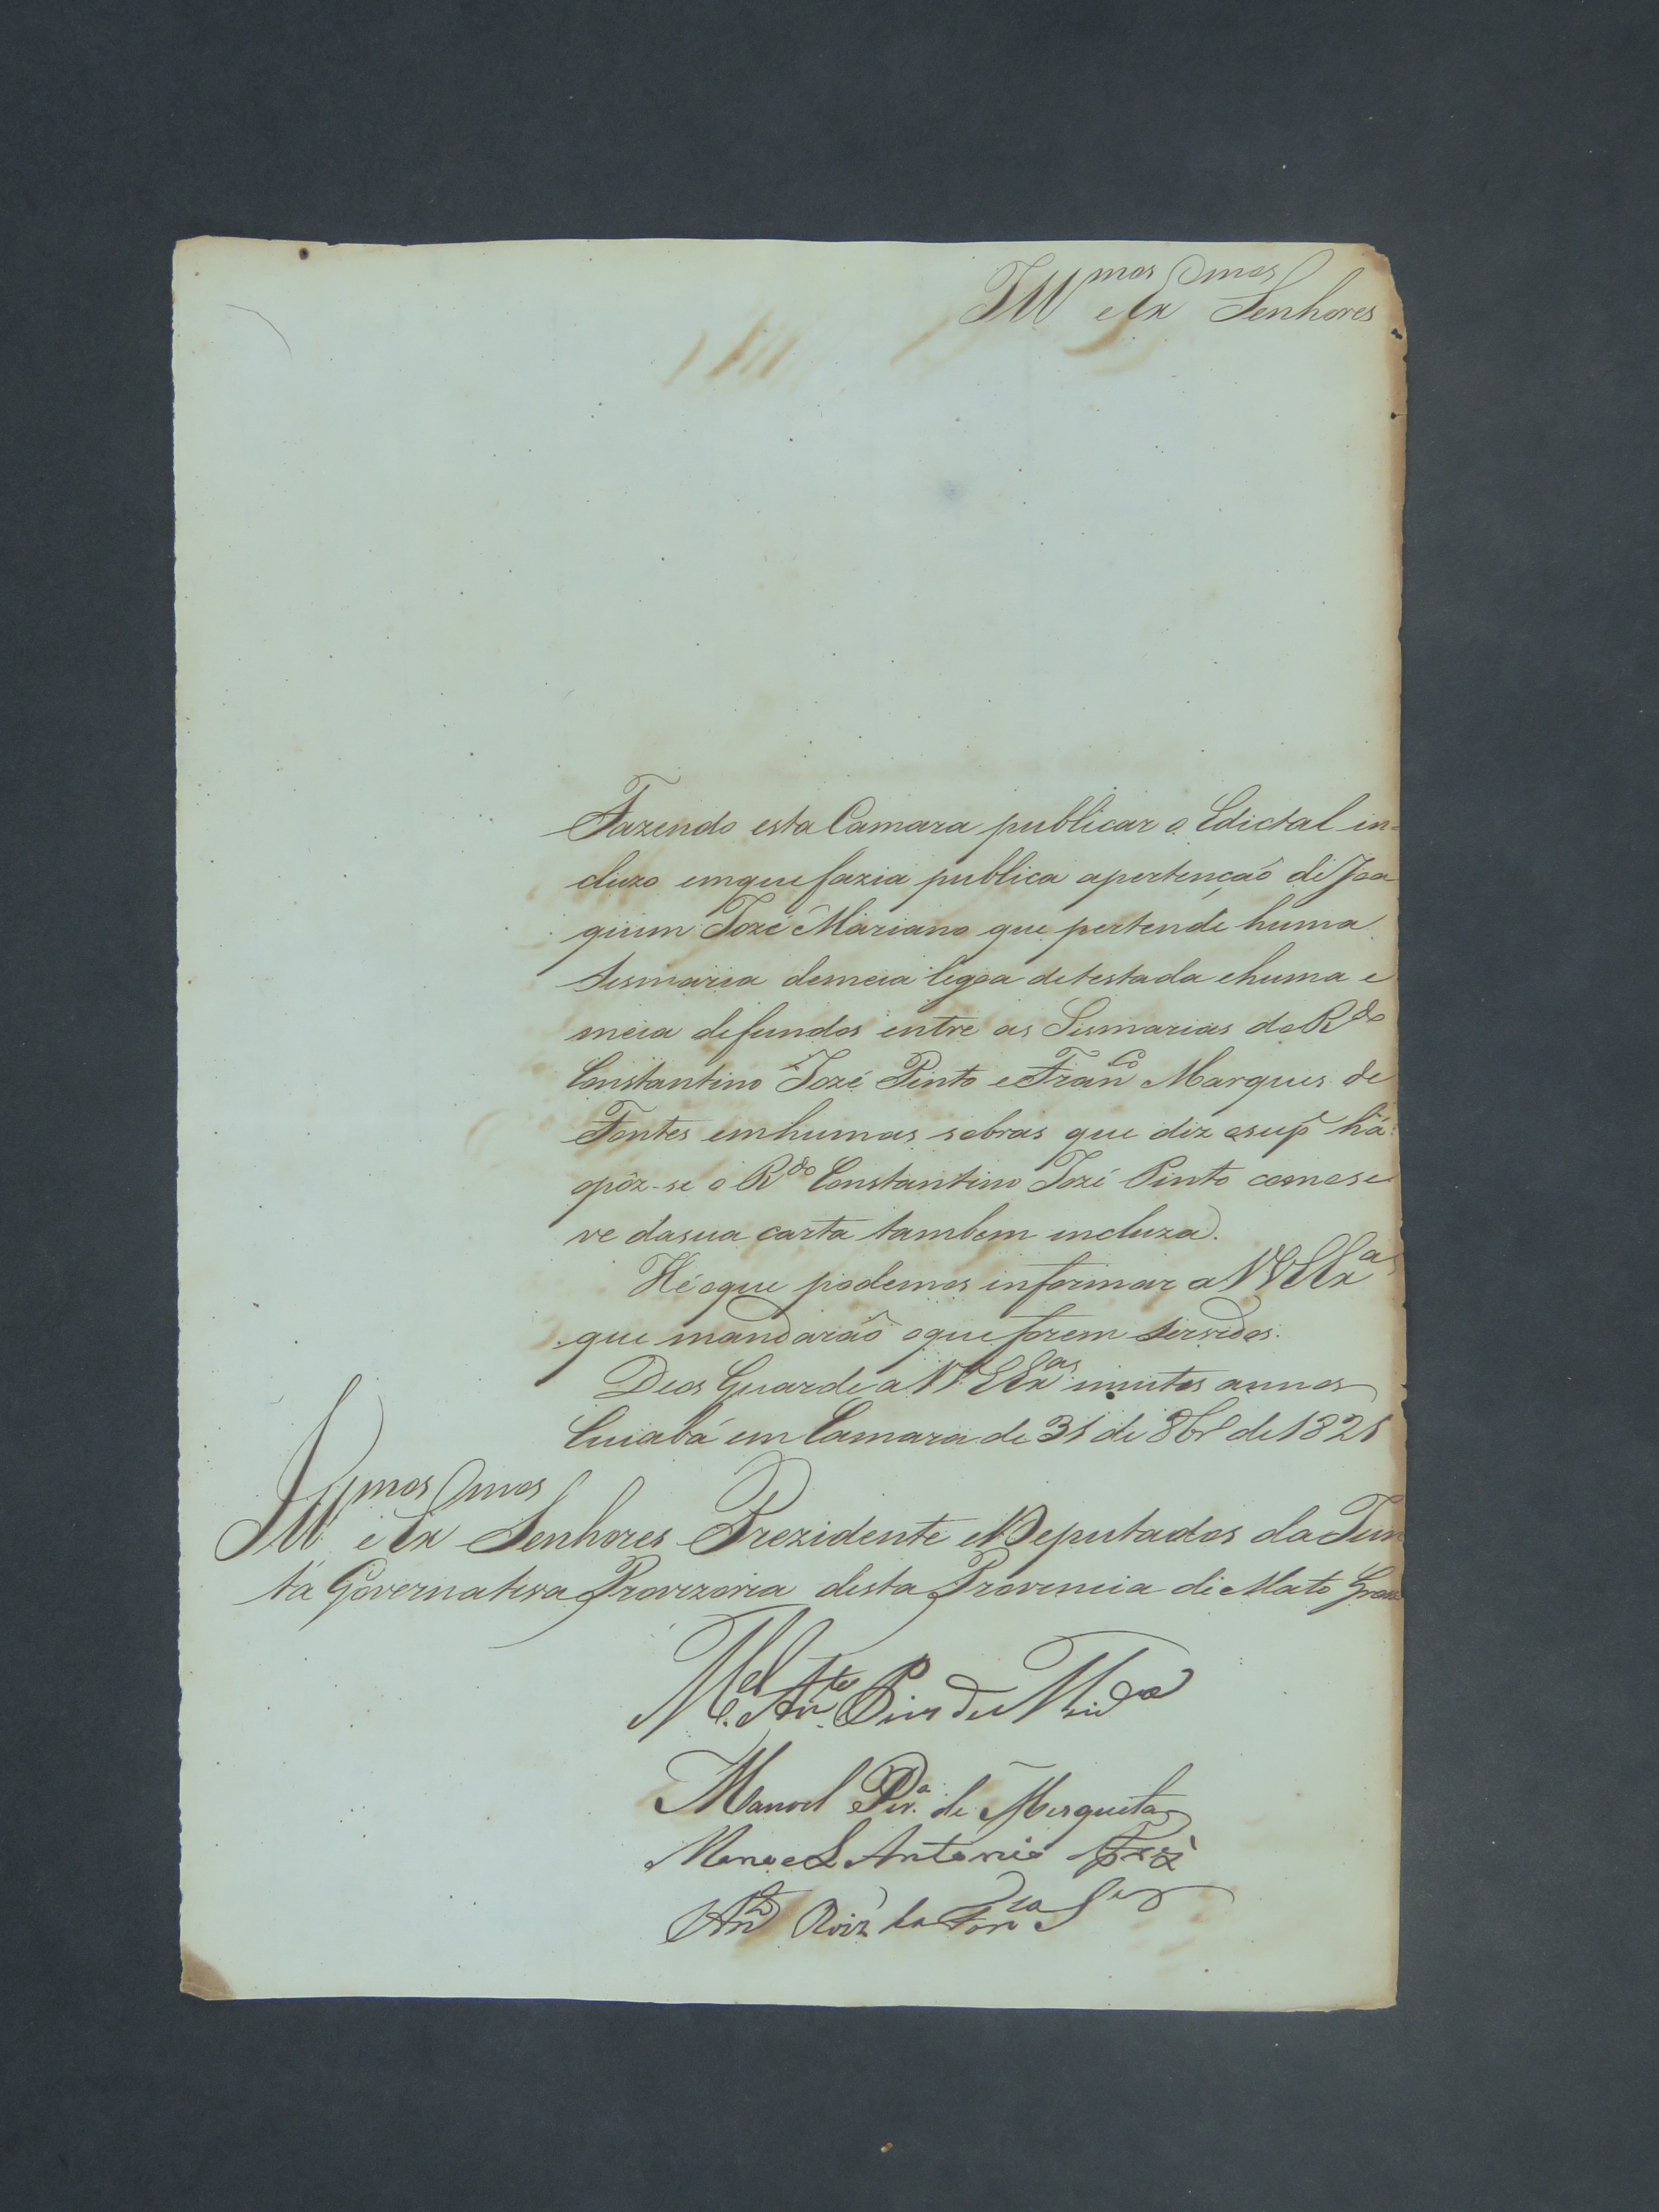 Ill.mos e Ex.mos Senhores
Fazendo esta Camara publicar o Edictal in=
cluzo emque fazia publica apertençaõ de Joa
quim Jozé Mariano que pertende huma
Sesmaria demeia legoa detestada ehuma e
meia defundos entre as Sismarias do R.do
Constantino Jozé Pinto e Fran.co Marques de
Fontes emhumas sobras que diz osup.e há:
opôz-se o R.do Constantino Jozé Pinto comose
ve dasua carta tambem incluza.
Hé oque podemos informar a V.EEx.as
que mandaraõ oque forem servidos.
Deos Guarde a V.EEx.as muitos annos
Cuiabá em Camara de 31 de 8br.o de 1821
Ill.mos e Ex.mos Senhores Prezidente e Deputados da Jun
ta Governativa Provizoria desta Provincia de Mato Gross
M.el Ant.o Pires de Mir.da
Manoel Per.a de Mesquita
Manoel Antonio
Ant.o Roiz' da Fon.ca